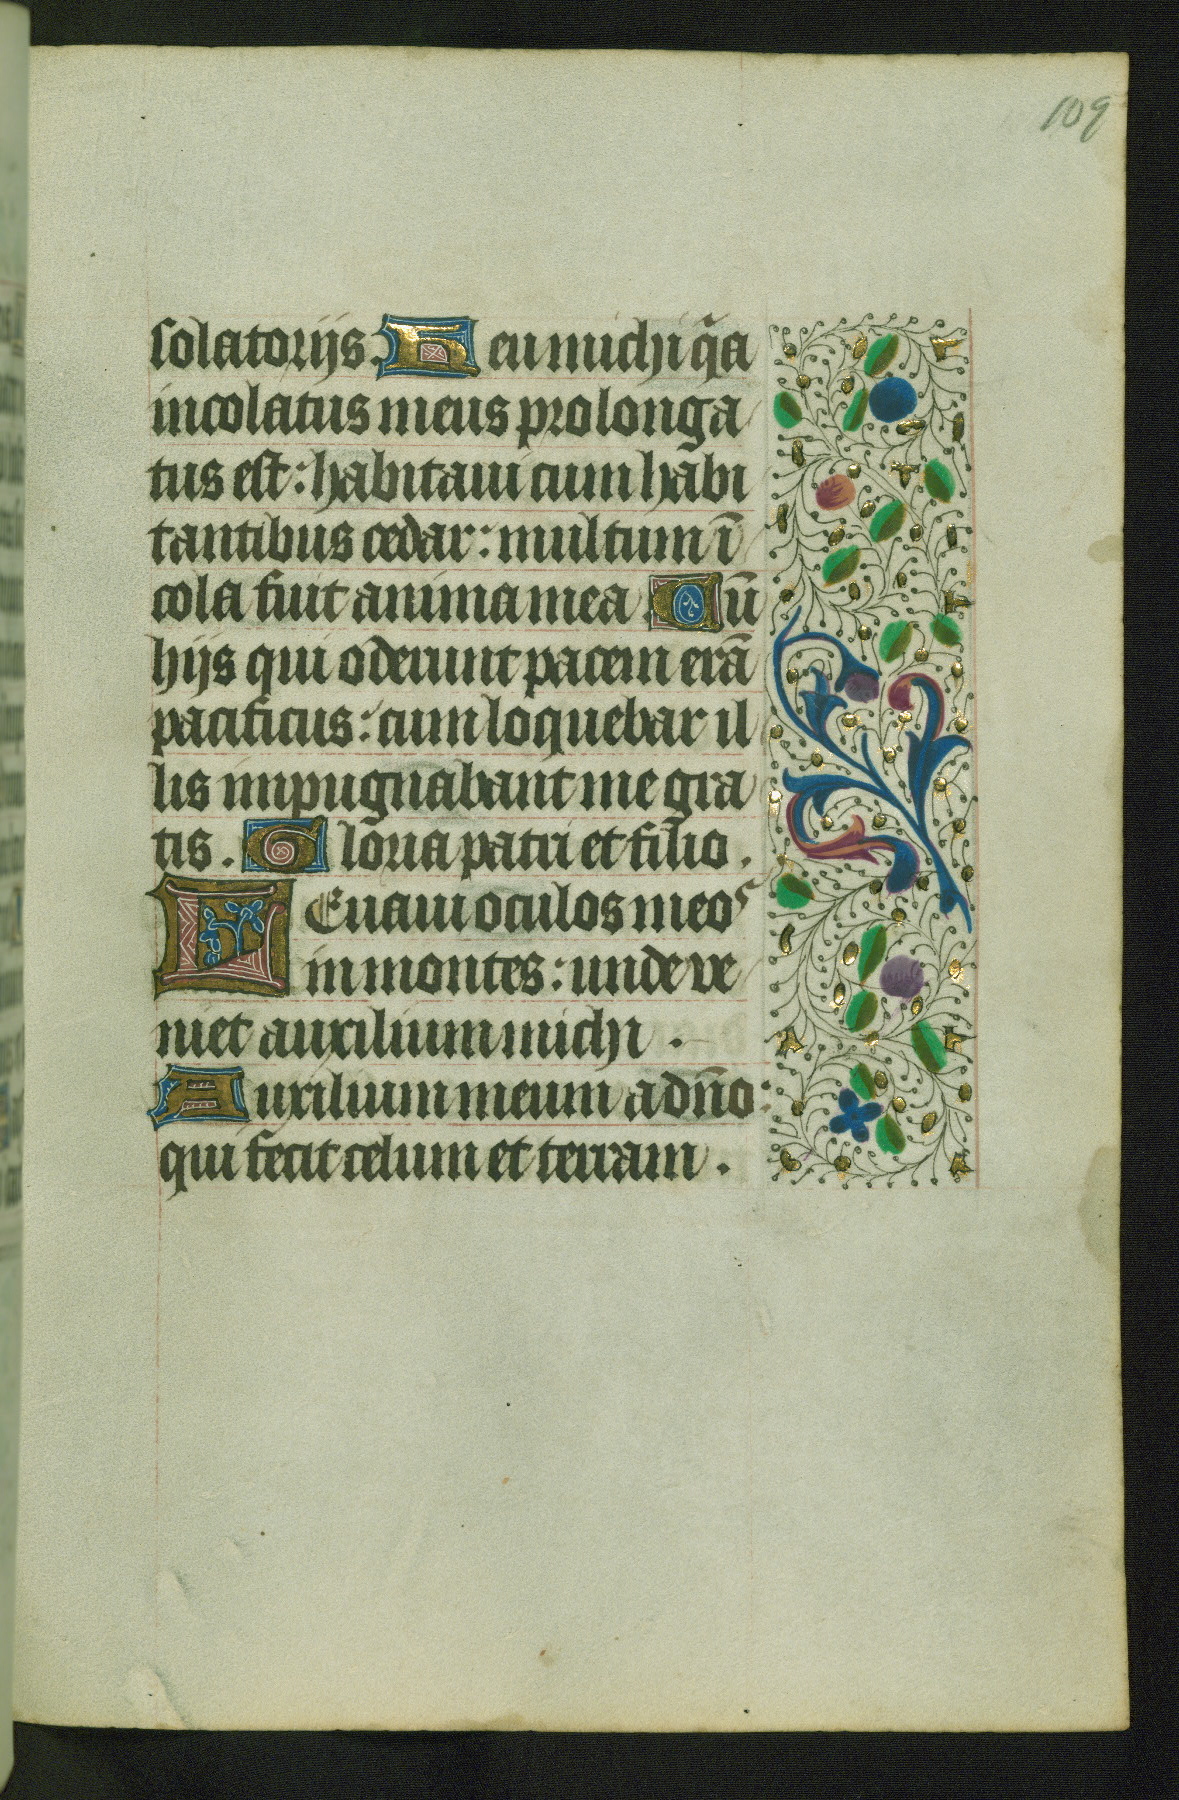 109
solatorijs. Heu michi q̃a
incolatus meus prolonga
tus est: habitaui cum habi
tantibus cedar: multum ĩ
cola fuit anima mea. Cũ
hijs qui oderunt pacem erã
pacificus: cum loquebar il
lis impugnabant me gra
tis. Gloria patri et filio.
LEuaui oculos meos
in montes: unde ve
niet auxilium michi.
Auxilium meum a dño:
qui fecit celum et terram.